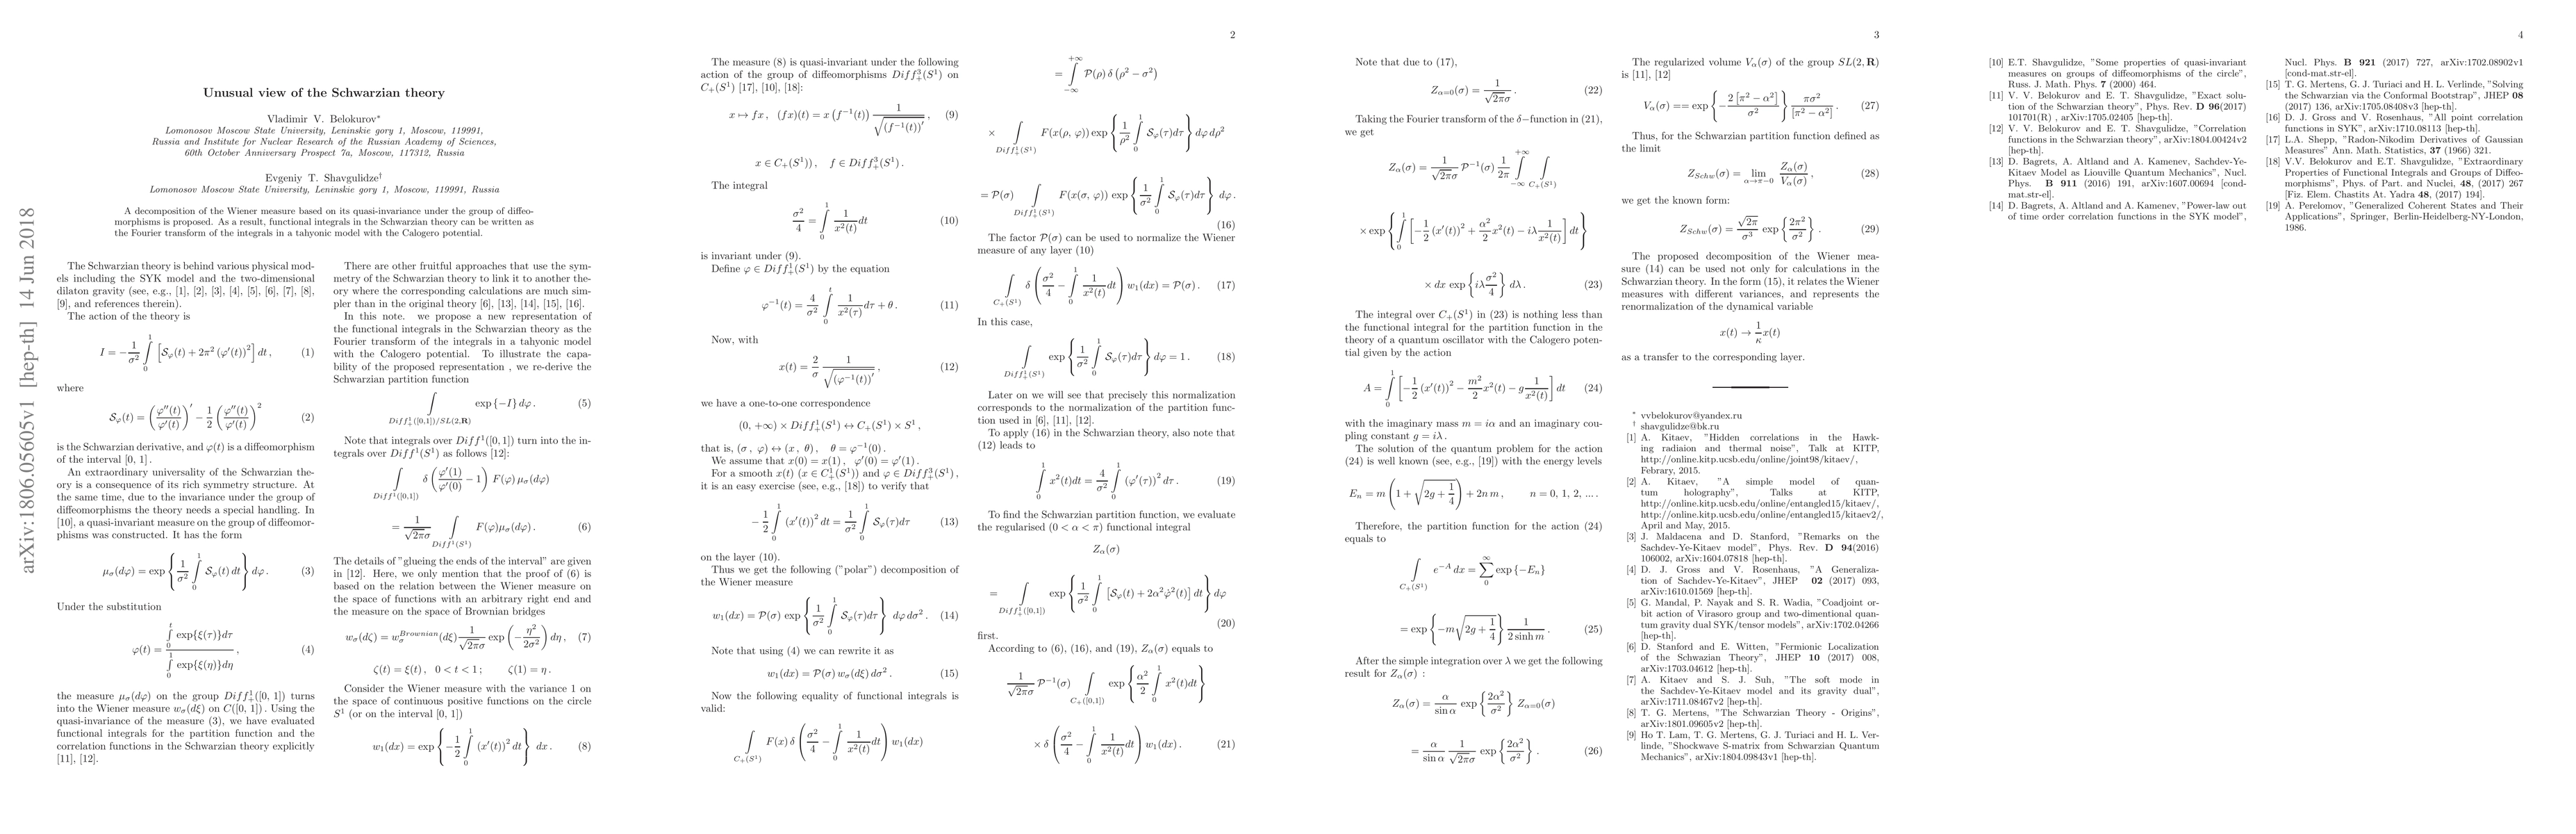 Unusual view of the Schwarzian theory
Vladimir V. Belokurov*
Lomonosov Moscow State University, Leninskie gory 1, Moscow, 119991,
Russia and Institute for Nuclear Research of the Russian Academy of Sciences,
60th October Anniversary Prospect 7a, Moscow, 117312, Russia
Evgeniy T. Shavgulidze†
Lomonosov Moscow State University, Leninskie gory 1, Moscow, 119991, Russia
A decomposition of the Wiener measure based on its quasi-invariance under the group of diffeo-
morphisms is proposed. As a result, functional integrals in the Schwarzian theory can be written as
the Fourier transform of the integrals in a tahyonic model with the Calogero potential.
arXiv:1806.05605v1 [hep-th] 14 Jun 2018
The Schwarzian theory is behind various physical mod-
els including the SYK model and the two-dimensional
dilaton gravity (see, e.g., [1], [2], [3], [4], [5], [6], [7], [8],
[9], and references therein).
The action of the theory is
I = −1/σ² ∫₀¹ [S_φ(t) + 2π² (φ′(t))²] dt , (1)
where
S_φ(t) = (φ″(t)/φ′(t))′ − 1/2 (φ″(t)/φ′(t))² (2)
is the Schwarzian derivative, and φ(t) is a diffeomorphism
of the interval [0, 1] .
An extraordinary universality of the Schwarzian the-
ory is a consequence of its rich symmetry structure. At
the same time, due to the invariance under the group of
diffeomorphisms the theory needs a special handling. In
[10], a quasi-invariant measure on the group of diffeomor-
phisms was constructed. It has the form
μ_σ(dφ) = exp { 1/σ² ∫₀¹ S_φ(t) dt } dφ . (3)
Under the substitution
φ(t) = ∫₀ᵗ exp{ξ(τ)}dτ / ∫₀¹ exp{ξ(η)}dη , (4)
the measure μ_σ(dφ) on the group Diff¹₊([0, 1]) turns
into the Wiener measure w_σ(dξ) on C([0, 1]) . Using the
quasi-invariance of the measure (3), we have evaluated
functional integrals for the partition function and the
correlation functions in the Schwarzian theory explicitly
[11], [12].
There are other fruitful approaches that use the sym-
metry of the Schwarzian theory to link it to another the-
ory where the corresponding calculations are much sim-
pler than in the original theory [6], [13], [14], [15], [16].
In this note. we propose a new representation of
the functional integrals in the Schwarzian theory as the
Fourier transform of the integrals in a tahyonic model
with the Calogero potential. To illustrate the capa-
bility of the proposed representation , we re-derive the
Schwarzian partition function
∫_{Diff¹₊([0,1])/SL(2,R)} exp {−I} dφ . (5)
Note that integrals over Diff¹([0, 1]) turn into the in-
tegrals over Diff¹(S¹) as follows [12]:
∫_{Diff¹([0,1])} δ (φ′(1)/φ′(0) − 1) F(φ) μ_σ(dφ)
= 1/(√2πσ) ∫_{Diff¹(S¹)} F(φ)μ_σ(dφ) . (6)
The details of ”glueing the ends of the interval” are given
in [12]. Here, we only mention that the proof of (6) is
based on the relation between the Wiener measure on
the space of functions with an arbitrary right end and
the measure on the space of Brownian bridges
w_σ(dζ) = w_σ^{Brownian}(dξ) 1/(√2πσ) exp (−η²/2σ²) dη , (7)
ζ(t) = ξ(t) , 0 < t < 1 ; ζ(1) = η .
Consider the Wiener measure with the variance 1 on
the space of continuous positive functions on the circle
S¹ (or on the interval [0, 1])
w₁(dx) = exp { −1/2 ∫₀¹ (x′(t))² dt } dx . (8)
2
The measure (8) is quasi-invariant under the following
action of the group of diffeomorphisms Diff³₊(S¹) on
C₊(S¹) [17], [10], [18]:
x ↦ fx , (fx)(t) = x (f⁻¹(t)) 1/√((f⁻¹(t))′) , (9)
x ∈ C₊(S¹)) , f ∈ Diff³₊(S¹) .
The integral
σ²/4 = ∫₀¹ 1/x²(t) dt (10)
is invariant under (9).
Define φ ∈ Diff¹₊(S¹) by the equation
φ⁻¹(t) = 4/σ² ∫₀ᵗ 1/x²(τ) dτ + θ . (11)
Now, with
x(t) = 2/σ 1/√((φ⁻¹(t))′) , (12)
we have a one-to-one correspondence
(0, +∞) × Diff¹₊(S¹) ↔ C₊(S¹) × S¹ ,
that is, (σ , φ) ↔ (x , θ) , θ = φ⁻¹(0) .
We assume that x(0) = x(1) , φ′(0) = φ′(1) .
For a smooth x(t) (x ∈ C¹₊(S¹)) and φ ∈ Diff³₊(S¹) ,
it is an easy exercise (see, e.g., [18]) to verify that
−1/2 ∫₀¹ (x′(t))² dt = 1/σ² ∫₀¹ S_φ(τ)dτ (13)
on the layer (10).
Thus we get the following (”polar”) decomposition of
the Wiener measure
w₁(dx) = P(σ) exp { 1/σ² ∫₀¹ S_φ(τ)dτ } dφ dσ² . (14)
Note that using (4) we can rewrite it as
w₁(dx) = P(σ) w_σ(dξ) dσ² . (15)
Now the following equality of functional integrals is
valid:
∫_{C₊(S¹)} F(x) δ ( σ²/4 − ∫₀¹ 1/x²(t) dt ) w₁(dx)
= ∫_{−∞}^{+∞} P(ρ) δ (ρ² − σ²)
× ∫_{Diff¹₊(S¹)} F(x(ρ, φ)) exp { 1/ρ² ∫₀¹ S_φ(τ)dτ } dφ dρ²
= P(σ) ∫_{Diff¹₊(S¹)} F(x(σ, φ)) exp { 1/σ² ∫₀¹ S_φ(τ)dτ } dφ .
(16)
The factor P(σ) can be used to normalize the Wiener
measure of any layer (10)
∫_{C₊(S¹)} δ ( σ²/4 − ∫₀¹ 1/x²(t) dt ) w₁(dx) = P(σ) . (17)
In this case,
∫_{Diff¹₊(S¹)} exp { 1/σ² ∫₀¹ S_φ(τ)dτ } dφ = 1 . (18)
Later on we will see that precisely this normalization
corresponds to the normalization of the partition func-
tion used in [6], [11], [12].
To apply (16) in the Schwarzian theory, also note that
(12) leads to
∫₀¹ x²(t)dt = 4/σ² ∫₀¹ (φ′(τ))² dτ . (19)
To find the Schwarzian partition function, we evaluate
the regularised (0 < α < π) functional integral
Z_α(σ)
= ∫_{Diff¹₊([0,1])} exp { 1/σ² ∫₀¹ [S_φ(t) + 2α²φ̇²(t)] dt } dφ
(20)
first.
According to (6), (16), and (19), Z_α(σ) equals to
1/(√2πσ) P⁻¹(σ) ∫_{C₊([0,1])} exp { α²/2 ∫₀¹ x²(t)dt }
× δ ( σ²/4 − ∫₀¹ 1/x²(t) dt ) w₁(dx) . (21)
3
Note that due to (17),
Z_{α=0}(σ) = 1/(√2πσ) . (22)
Taking the Fourier transform of the δ−function in (21),
we get
Z_α(σ) = 1/(√2πσ) P⁻¹(σ) 1/2π ∫_{−∞}^{+∞} ∫_{C₊(S¹)}
× exp { ∫₀¹ [ −1/2 (x′(t))² + α²/2 x²(t) − iλ 1/x²(t) ] dt }
× dx exp { iλ σ²/4 } dλ . (23)
The integral over C₊(S¹) in (23) is nothing less than
the functional integral for the partition function in the
theory of a quantum oscillator with the Calogero poten-
tial given by the action
A = ∫₀¹ [ −1/2 (x′(t))² − m²/2 x²(t) − g 1/x²(t) ] dt (24)
with the imaginary mass m = iα and an imaginary cou-
pling constant g = iλ .
The solution of the quantum problem for the action
(24) is well known (see, e.g., [19]) with the energy levels
E_n = m ( 1 + √(2g + 1/4) ) + 2n m , n = 0, 1, 2, ... .
Therefore, the partition function for the action (24)
equals to
∫_{C₊(S¹)} e^{−A} dx = Σ₀^∞ exp {−E_n}
= exp { −m √(2g + 1/4) } 1/(2 sinh m) . (25)
After the simple integration over λ we get the following
result for Z_α(σ) :
Z_α(σ) = α/sin α exp { 2α²/σ² } Z_{α=0}(σ)
= α/sin α 1/(√2πσ) exp { 2α²/σ² } . (26)
The regularized volume V_α(σ) of the group SL(2, R)
is [11], [12]
V_α(σ) == exp { −2 [π² − α²]/σ² } πσ²/[π² − α²] . (27)
Thus, for the Schwarzian partition function defined as
the limit
Z_{Schw}(σ) = lim_{α→π−0} Z_α(σ)/V_α(σ) , (28)
we get the known form:
Z_{Schw}(σ) = √2π/σ³ exp { 2π²/σ² } . (29)
The proposed decomposition of the Wiener mea-
sure (14) can be used not only for calculations in the
Schwarzian theory. In the form (15), it relates the Wiener
measures with different variances, and represents the
renormalization of the dynamical variable
x(t) → 1/κ x(t)
as a transfer to the corresponding layer.
* vvbelokurov@yandex.ru
† shavgulidze@bk.ru
[1] A. Kitaev, ”Hidden correlations in the Hawk-
ing radiaion and thermal noise”, Talk at KITP,
http://online.kitp.ucsb.edu/online/joint98/kitaev/,
Febrary, 2015.
[2] A. Kitaev, ”A simple model of quan-
tum holography”, Talks at KITP,
http://online.kitp.ucsb.edu/online/entangled15/kitaev/,
http://online.kitp.ucsb.edu/online/entangled15/kitaev2/,
April and May, 2015.
[3] J. Maldacena and D. Stanford, ”Remarks on the
Sachdev-Ye-Kitaev model”, Phys. Rev. D 94(2016)
106002, arXiv:1604.07818 [hep-th].
[4] D. J. Gross and V. Rosenhaus, ”A Generaliza-
tion of Sachdev-Ye-Kitaev”, JHEP 02 (2017) 093,
arXiv:1610.01569 [hep-th].
[5] G. Mandal, P. Nayak and S. R. Wadia, ”Coadjoint or-
bit action of Virasoro group and two-dimentional quan-
tum gravity dual SYK/tensor models”, arXiv:1702.04266
[hep-th].
[6] D. Stanford and E. Witten, ”Fermionic Localization
of the Schwazian Theory”, JHEP 10 (2017) 008,
arXiv:1703.04612 [hep-th].
[7] A. Kitaev and S. J. Suh, ”The soft mode in
the Sachdev-Ye-Kitaev model and its gravity dual”,
arXiv:1711.08467v2 [hep-th].
[8] T. G. Mertens, ”The Schwarzian Theory - Origins”,
arXiv:1801.09605v2 [hep-th].
[9] Ho T. Lam, T. G. Mertens, G. J. Turiaci and H. L. Ver-
linde, ”Shockwave S-matrix from Schwarzian Quantum
Mechanics”, arXiv:1804.09843v1 [hep-th].
4
[10] E.T. Shavgulidze, ”Some properties of quasi-invariant
measures on groups of diffeomorphisms of the circle”,
Russ. J. Math. Phys. 7 (2000) 464.
[11] V. V. Belokurov and E. T. Shavgulidze, ”Exact solu-
tion of the Schwarzian theory”, Phys. Rev. D 96(2017)
101701(R) , arXiv:1705.02405 [hep-th].
[12] V. V. Belokurov and E. T. Shavgulidze, ”Correlation
functions in the Schwarzian theory”, arXiv:1804.00424v2
[hep-th].
[13] D. Bagrets, A. Altland and A. Kamenev, Sachdev-Ye-
Kitaev Model as Liouville Quantum Mechanics”, Nucl.
Phys. B 911 (2016) 191, arXiv:1607.00694 [cond-
mat.str-el].
[14] D. Bagrets, A. Altland and A. Kamenev, ”Power-law out
of time order correlation functions in the SYK model”,
Nucl. Phys. B 921 (2017) 727, arXiv:1702.08902v1
[cond-mat.str-el].
[15] T. G. Mertens, G. J. Turiaci and H. L. Verlinde, ”Solving
the Schwarzian via the Conformal Bootstrap”, JHEP 08
(2017) 136, arXiv:1705.08408v3 [hep-th].
[16] D. J. Gross and V. Rosenhaus, ”All point correlation
functions in SYK”, arXiv:1710.08113 [hep-th].
[17] L.A. Shepp, ”Radon-Nikodim Derivatives of Gaussian
Measures” Ann. Math. Statistics, 37 (1966) 321.
[18] V.V. Belokurov and E.T. Shavgulidze, ”Extraordinary
Properties of Functional Integrals and Groups of Diffeo-
morphisms”, Phys. of Part. and Nuclei, 48, (2017) 267
[Fiz. Elem. Chastits At. Yadra 48, (2017) 194].
[19] A. Perelomov, ”Generalized Coherent States and Their
Applications”, Springer, Berlin-Heidelberg-NY-London,
1986.